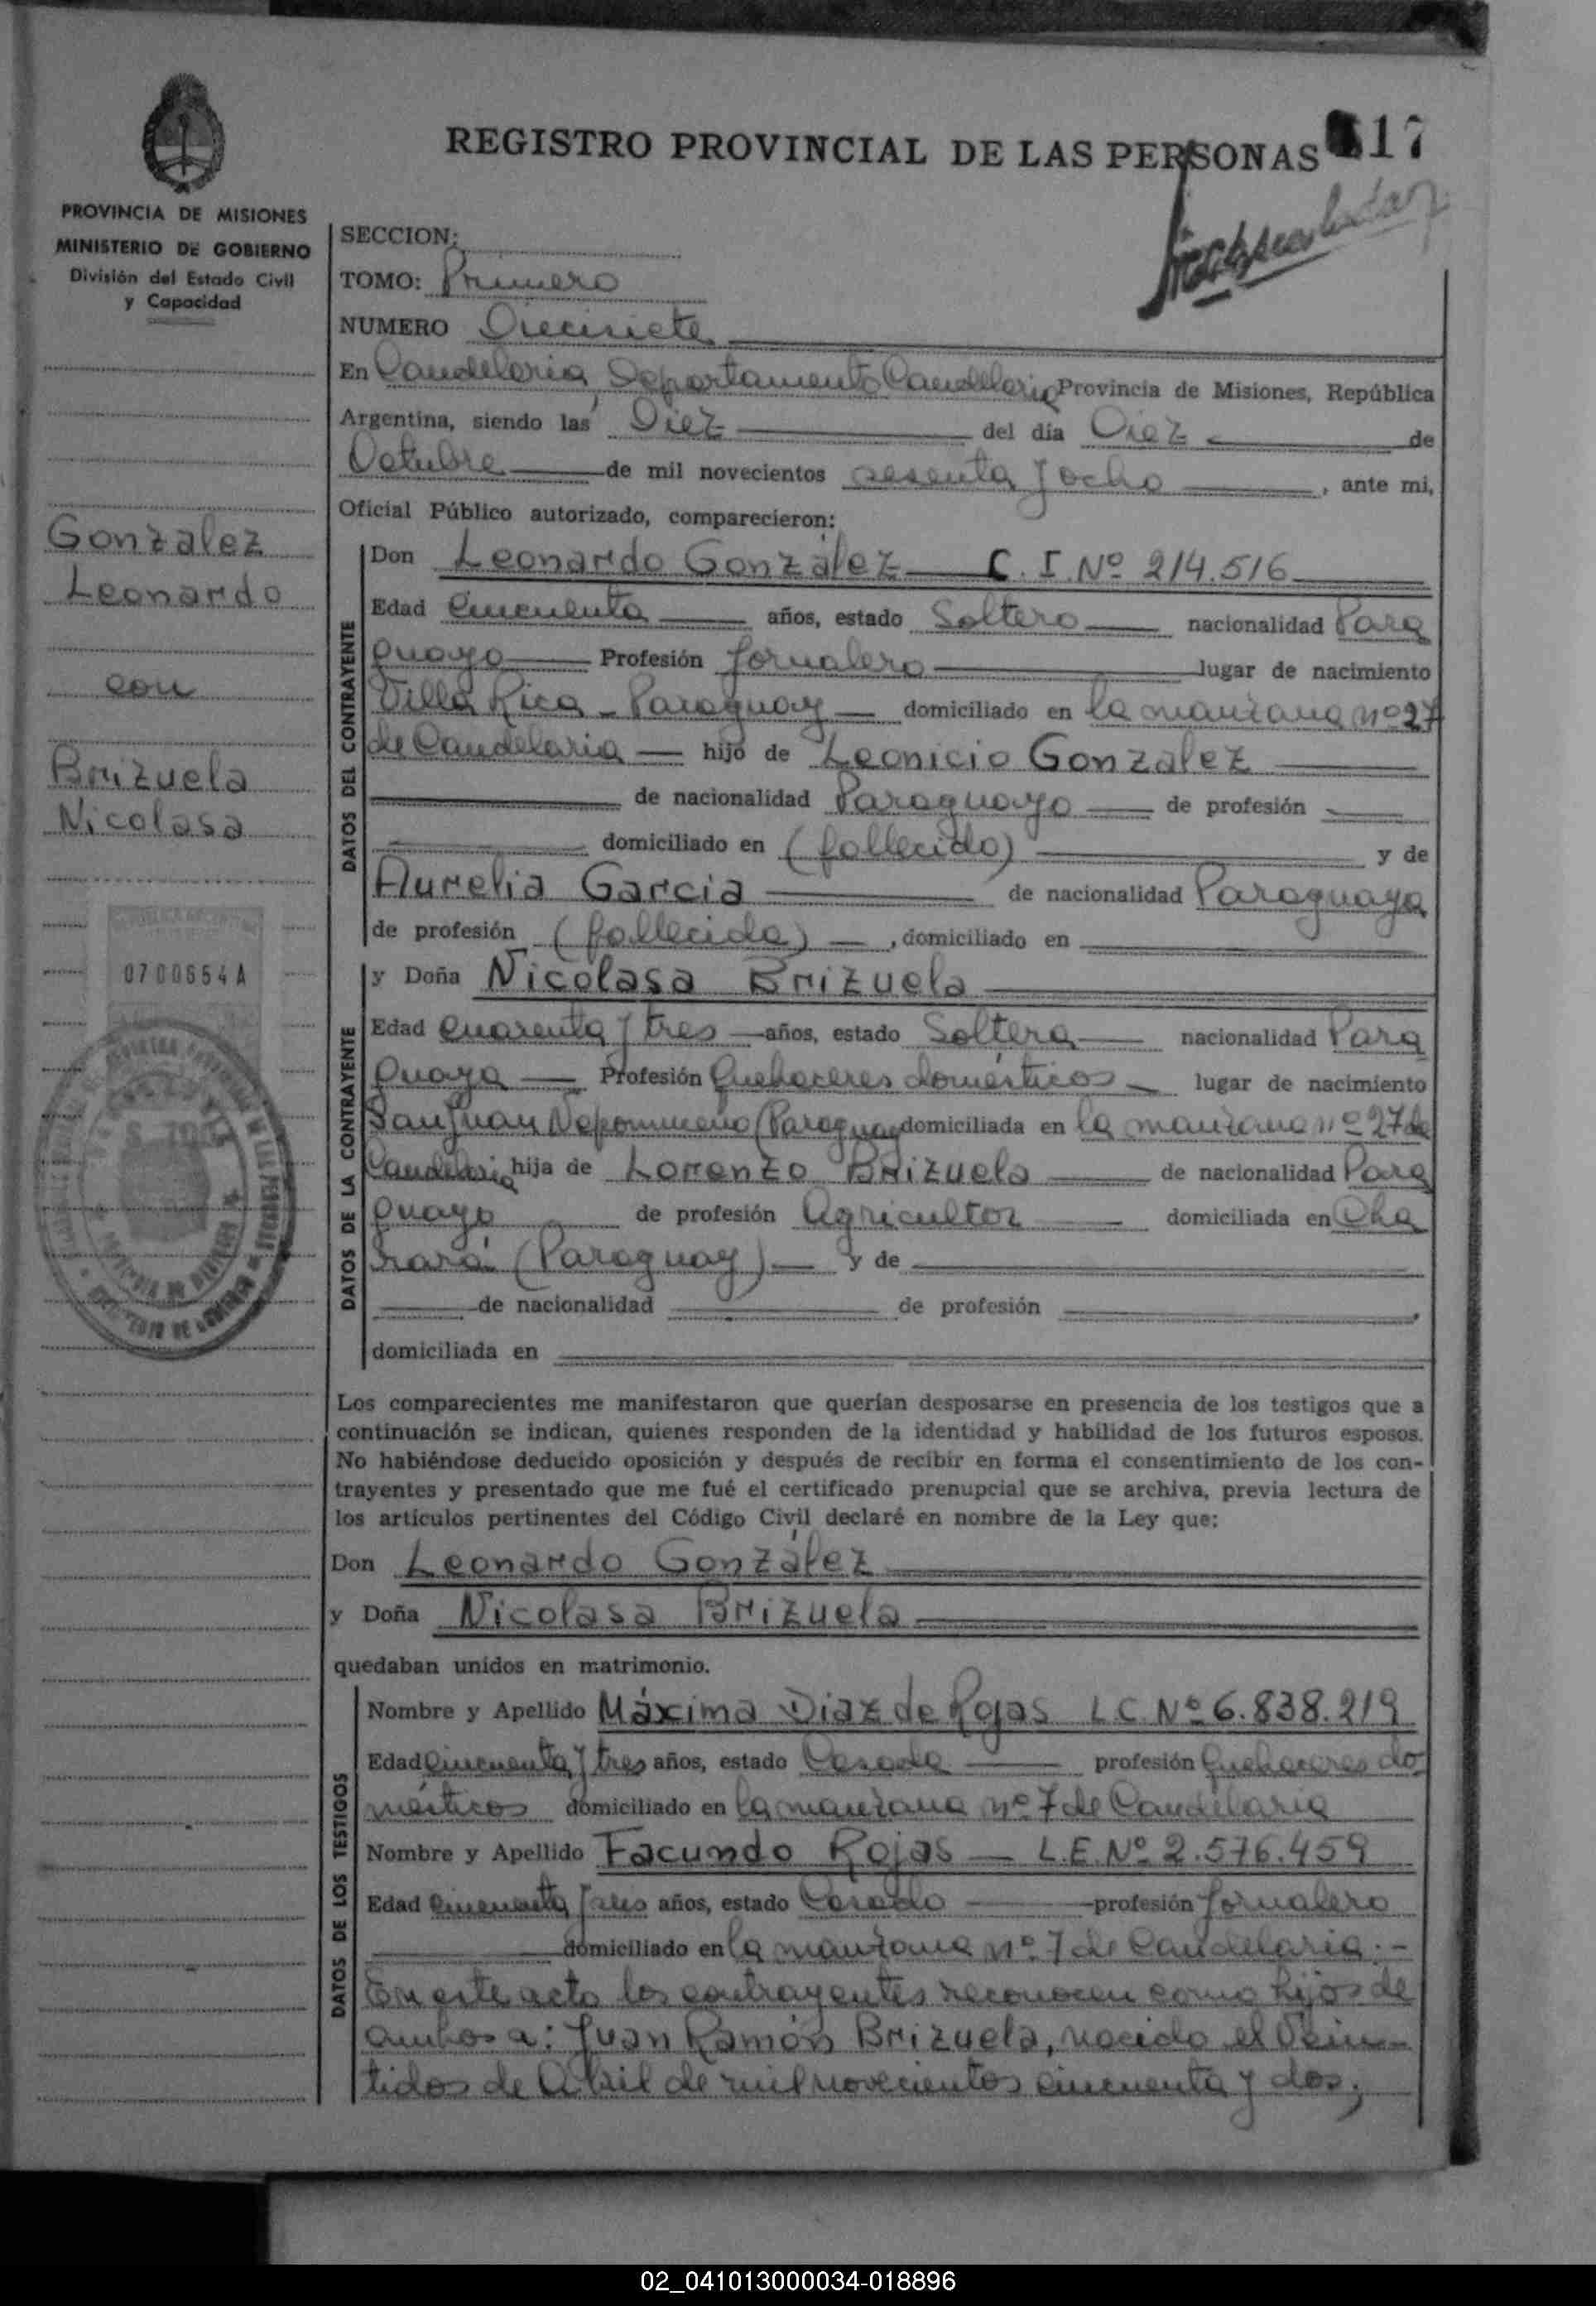 REGISTRO PROVINCIAL DE LAS PERSONAS 17
PROVINCIA DE MISIONES
MINISTERIO DE GOBIERNO
División del Estado Civil
y Capacidad
SECCION:
TOMO: Primero
NUMERO Diecisiete
En Candelaria, Departamento Candelaria Provincia de Misiones, República
Argentina, siendo las Diez del día Diez de
Octubre de mil novecientos sesenta y ocho, ante mi,
Oficial Público autorizado, comparecieron:
Gonzalez
Leonardo
con
Brizuela
Nicolasa
0700654A
DATOS DEL CONTRAYENTE
Don Leonardo González C. I. Nº 214.516
Edad Cincuenta años, estado Soltero nacionalidad Para
guayo Profesión Jornalero lugar de nacimiento
Villa Rica - Paraguay domiciliado en la manzana nº 27
de Candelaria hijo de Leonicio Gonzalez
de nacionalidad Paraguayo de profesión
domiciliado en (fallecido) y de
Aurelia Garcia de nacionalidad Paraguaya
de profesión (fallecida), domiciliado en
DATOS DE LA CONTRAYENTE
y Doña Nicolasa Brizuela
Edad Cuarenta y tres años, estado Soltera nacionalidad Para
guaya Profesión Quehaceres domésticos lugar de nacimiento
San Juan Nepomuceno (Paraguay domiciliada en la manzana nº 27 de
Candelaria hija de Lorenzo Brizuela de nacionalidad Para
guayo de profesión Agricultor domiciliada en Cha
rará (Paraguay) y de
de nacionalidad de profesión
domiciliada en
Los comparecientes me manifestaron que querían desposarse en presencia de los testigos que a
continuación se indican, quienes responden de la identidad y habilidad de los futuros esposos.
No habiéndose deducido oposición y después de recibir en forma el consentimiento de los con-
trayentes y presentado que me fué el certificado prenupcial que se archiva, previa lectura de
los artículos pertinentes del Código Civil declaré en nombre de la Ley que:
Don Leonardo González
y Doña Nicolasa Brizuela
quedaban unidos en matrimonio.
DATOS DE LOS TESTIGOS
Nombre y Apellido Máxima Diaz de Rojas L.C. Nº 6.838.219
Edad Cincuenta y tres años, estado Casada profesión Quehaceres do
mésticos domiciliado en la manzana nº 7 de Candelaria
Nombre y Apellido Facundo Rojas L.E. Nº 2.576.459
Edad Cincuenta años, estado Casado profesión Jornalero
domiciliado en la manzana nº 7 de Candelaria.-
En este acto los contrayentes reconocen como hijos de
ambos a: Juan Ramón Brizuela, nacido el Vein-
tidos de Abril de mil novecientos cincuenta y dos;
02_041013000034-018896